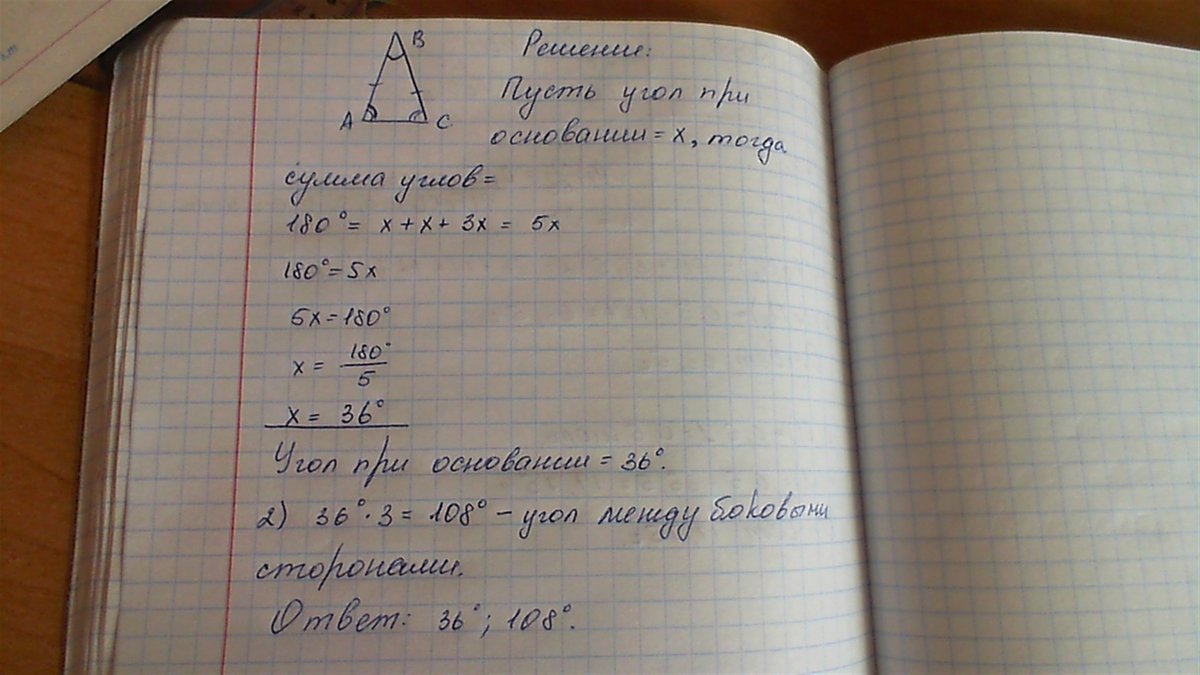 B
Решение:
Пусть угол при
A
C
основании = x, тогда
сумма углов =
180° = x + x + 3x = 5x
180° = 5x
5x = 180°
x = 180°/5
x = 36°
Угол при основании = 36°.
2) 36° · 3 = 108° – угол между боковыми
сторонами.
Ответ: 36°; 108°.